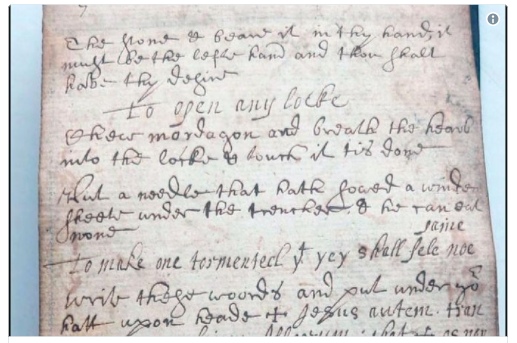 the stone & beare it in thy hand, it
must be the lefte hand and thou shalt
have thy desire
To open any locke
mordagon and breath the hearb
into the locke & it tis done
Put a needle that hath sowed a windei
sheete under the trencher & he can eat
none
To make one tormented yt yey shall fele noe
paine
write these woords and put under
hatt upon heade + Jesus autem tran